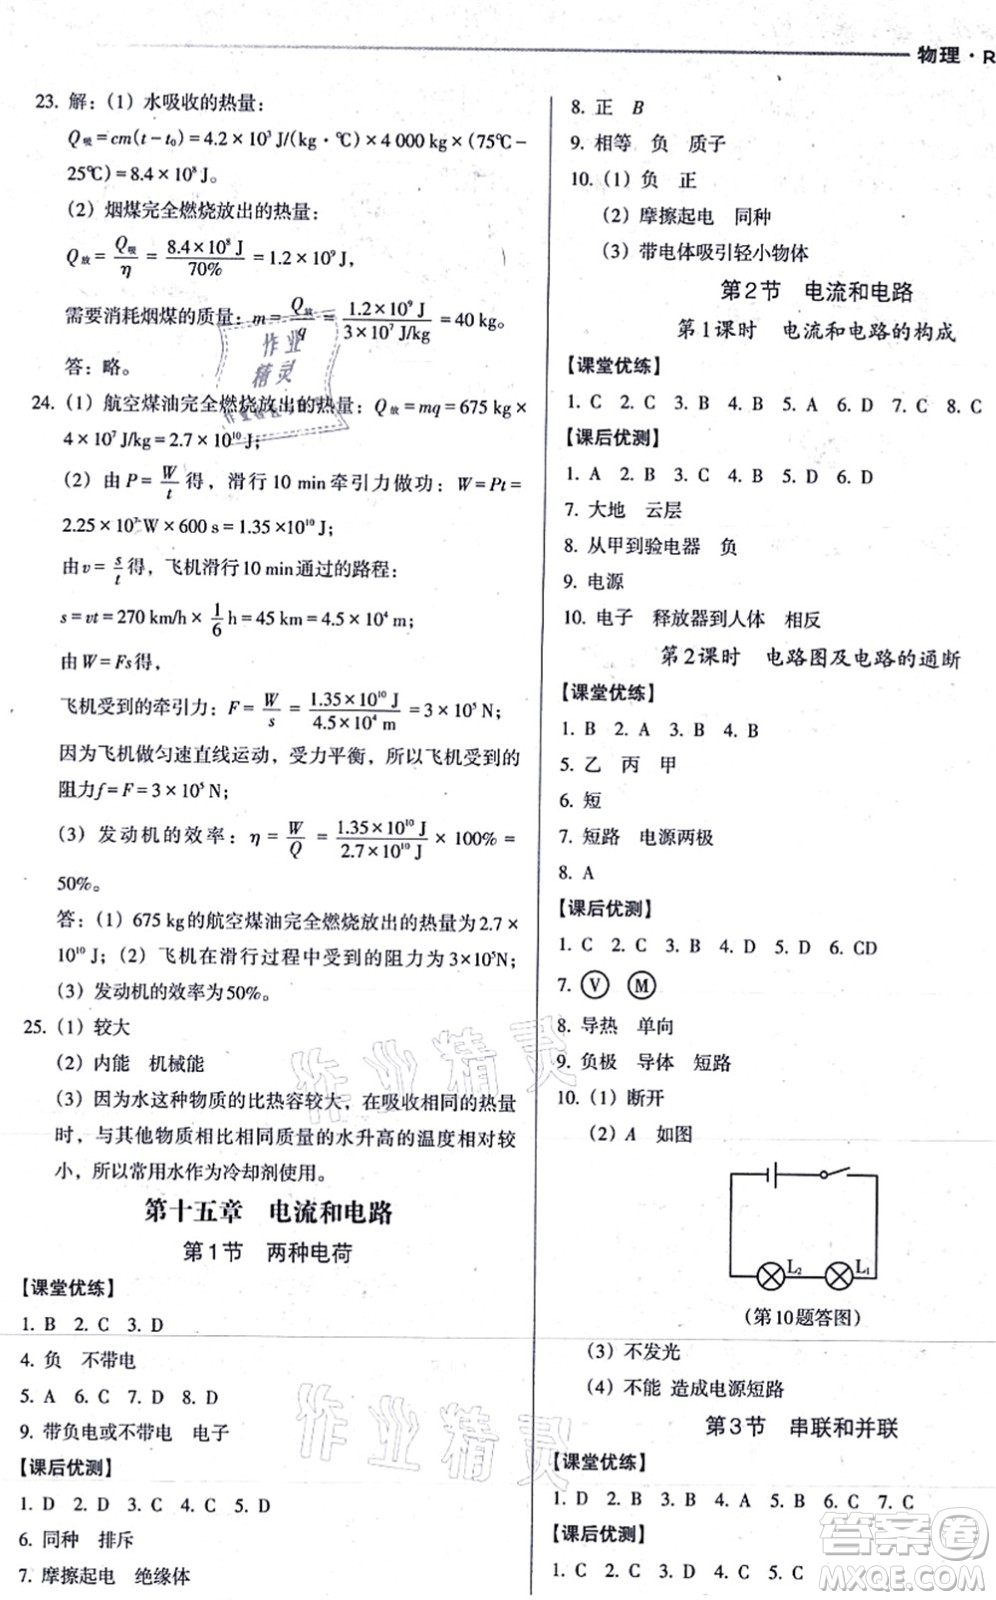 物理·R
23. 解：(1) 水吸收的热量：
Q吸=cm(t-t₀)=4.2×10³ J/(kg·℃)×4 000 kg×(75℃-
25℃)=8.4×10⁸ J。
(2) 烟煤完全燃烧放出的热量：
Q放=Q吸/η=8.4×10⁸ J/70%=1.2×10⁹ J,
需要消耗烟煤的质量：m=Q放/q=1.2×10⁹ J/3×10⁷ J/kg=40 kg。
答：略。
24. (1) 航空煤油完全燃烧放出的热量：Q放=mq=675 kg×
4×10⁷ J/kg=2.7×10¹⁰ J;
(2) 由P=W/t得，滑行10 min牵引力做功：W=Pt=
2.25×10⁷ W×600 s=1.35×10¹⁰ J;
由v=s/t得，飞机滑行10 min通过的路程：
s=vt=270 km/h×1/6 h=45 km=4.5×10⁴ m;
由W=Fs得，
飞机受到的牵引力：F=W/s=1.35×10¹⁰ J/4.5×10⁴ m=3×10⁵ N;
因为飞机做匀速直线运动，受力平衡，所以飞机受到的
阻力f=F=3×10⁵ N;
(3) 发动机的效率：η=W/Q=1.35×10¹⁰ J/2.7×10¹⁰ J×100%=
50%。
答：(1) 675 kg的航空煤油完全燃烧放出的热量为2.7×
10¹⁰ J；(2) 飞机在滑行过程中受到的阻力为3×10⁵N；
(3) 发动机的效率为50%。
25. (1) 较大
(2) 内能 机械能
(3) 因为水这种物质的比热容较大，在吸收相同的热量
时，与其他物质相比相同质量的水升高的温度相对较
小，所以常用水作为冷却剂使用。
第十五章 电流和电路
第1节 两种电荷
【课堂优练】
1. B 2. C 3. D
4. 负 不带电
5. A 6. C 7. D 8. D
9. 带负电或不带电 电子
【课后优测】
1. D 2. D 3. C 4. C 5. D
6. 同种 排斥
7. 摩擦起电 绝缘体
8. 正 B
9. 相等 负 质子
10. (1) 负 正
(2) 摩擦起电 同种
(3) 带电体吸引轻小物体
第2节 电流和电路
第1课时 电流和电路的构成
【课堂优练】
1. C 2. C 3. B 4. B 5. A 6. D 7. C 8. C
【课后优测】
1. A 2. B 3. C 4. D 5. D 6. D
7. 大地 云层
8. 从甲到验电器 负
9. 电源
10. 电子 释放器到人体 相反
第2课时 电路图及电路的通断
【课堂优练】
1. B 2. A 3. B 4. B
5. 乙 丙 甲
6. 短
7. 短路 电源两极
8. A
【课后优测】
1. C 2. C 3. B 4. D 5. D 6. CD
7. V M
8. 导热 单向
9. 负极 导体 短路
10. (1) 断开
(2) A 如图
L₂ L₁
(第10题答图)
(3) 不发光
(4) 不能 造成电源短路
第3节 串联和并联
【课堂优练】
1. D 2. B 3. B 4. A 5. B 6. C 7. C
【课后优测】
1. C 2. C 3. D 4. C 5. C
作业精灵
作业精灵
作业精灵
答案圈
MXQE.COM